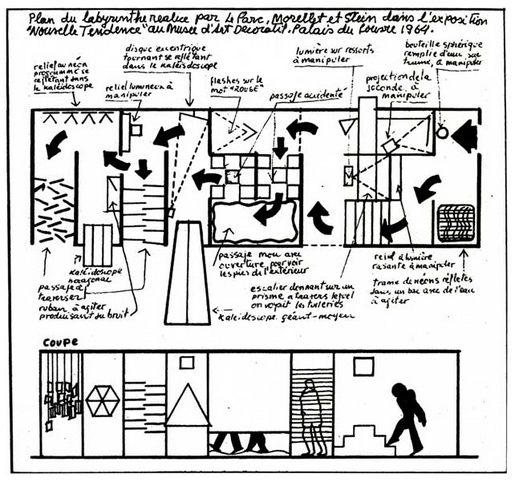 Plan du labyrinthe realicé par Le Parc, Morellet et Stein dans l'exposition
"Nouvelle Tendence" au Musée d'Art Decoratif. Palais du Louvre 1964.
relief au néon
programmé se
reflétant dans
le kaléidoscope
relief lumineux à
manipuler
disque excentrique
tournant se reflétant
dans le kaleidoscope
flashes sur le
mot "ROUGE"
passage accidenté
lumière sur ressorts
à manipuler
projection de la
seconde, à
manipuler
bouteille sphérique
remplie d'eau sur
à manipuler
passage à
traverser
kaléidoscope
hexagonal
ruban à agiter
produisant du bruit
passage mou avec
ouverture pour voir
les pies de l'extérieur
kaleidoscope géant-moyen
escalier donnant sur un
prisme à travers lequel
on voyait les tuileries
relief à lumière
rasante à manipuler
trame de néons reflétés
dans un bac avec de l'eau
à agiter
COUPE